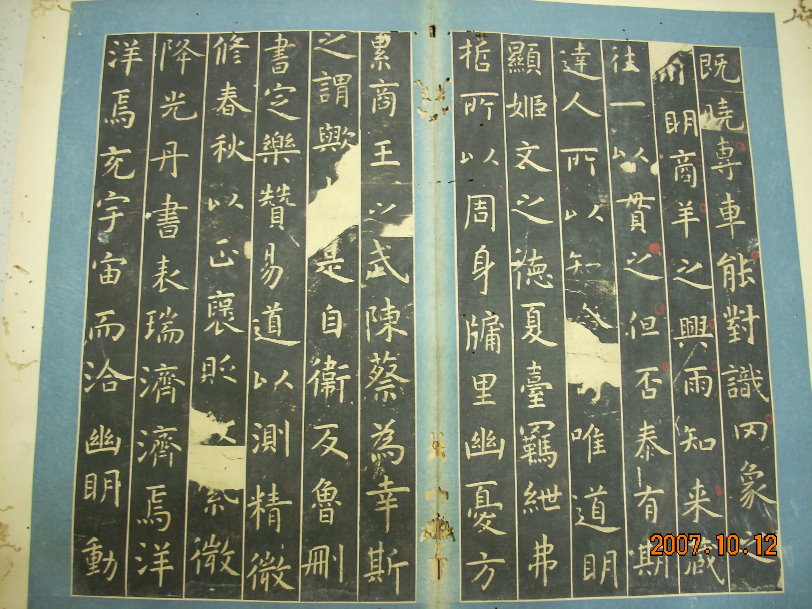 既曉専車能對識罔象之
川明商羊之興雨知来蔵
往一以貫之但否泰有期
達人所以知今 唯道明
顯姬文之德夏臺羈紲弗
哲所以周身牖里幽憂方
累商王之武陳蔡為幸斯
之謂歟 是自衛反魯刪
書定樂贊易道以測精微
修春秋以正襃貶 紫微
降光丹書表瑞濟濟焉洋
洋焉充宇宙而洽幽明動
2007.10.12